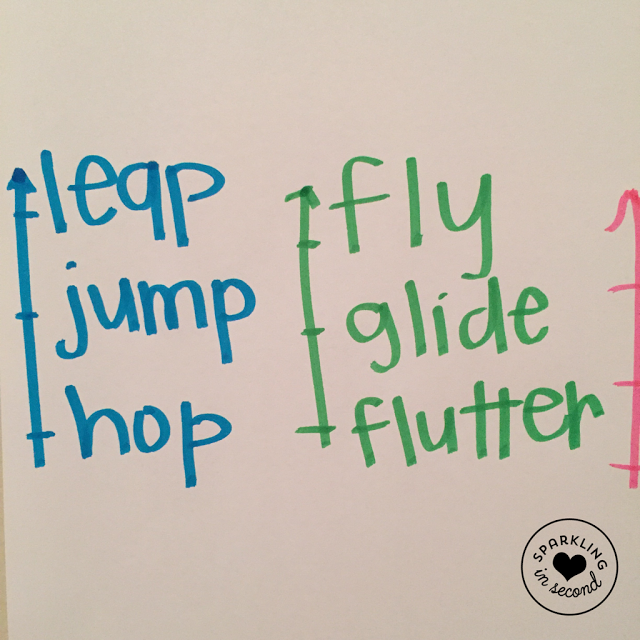 leap
jump
hop
fly
glide
flutter
SPARKLING
in second